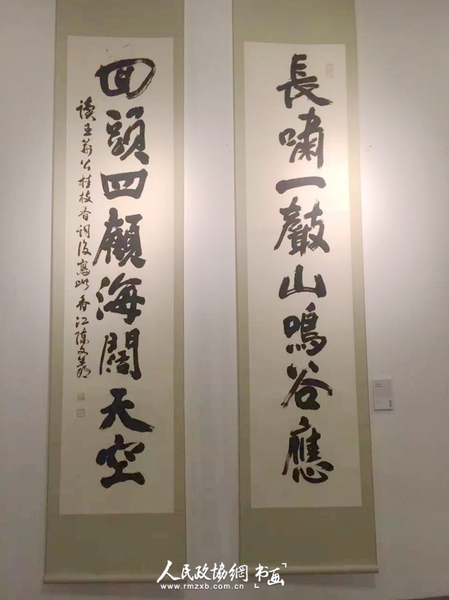 長嘯一聲山鳴谷應
回頭四顧海闊天空
讀王荊公桂枝香詞後寫此 香江陳文傑
人民政協網書画
www.rmzxb.com.cn